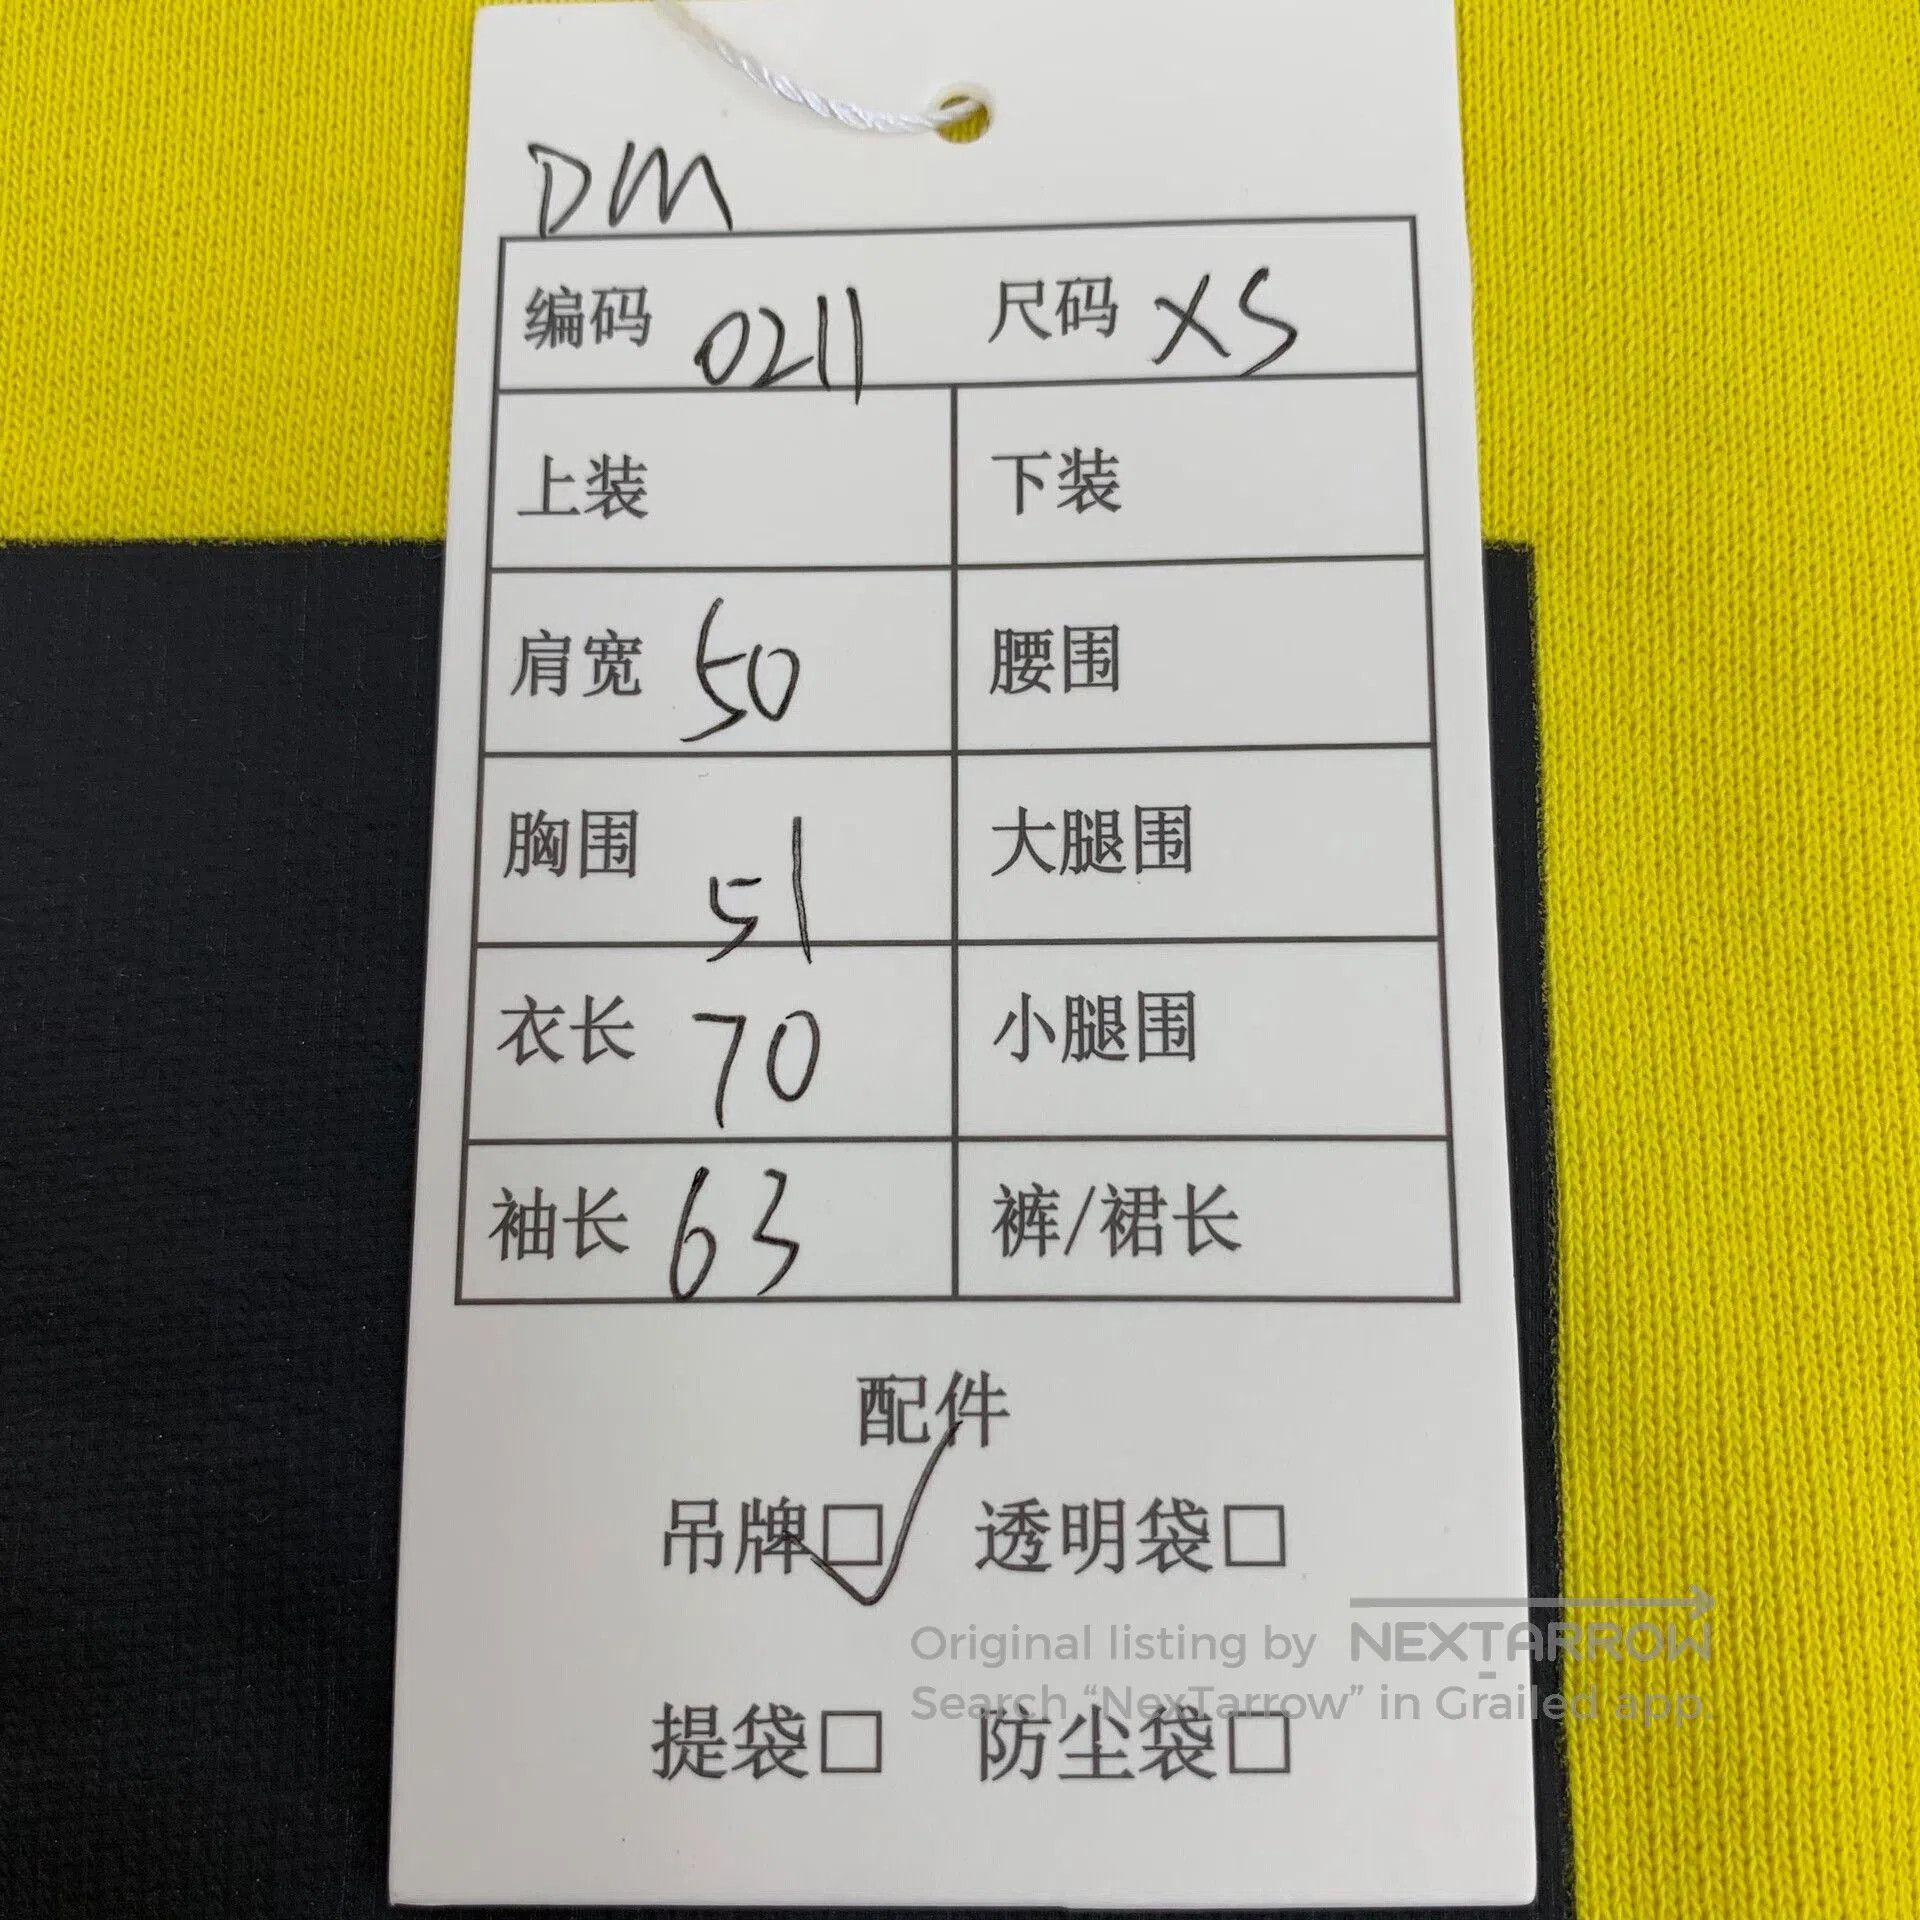 DM
编码 0211 尺码 XS
上装 下装
肩宽 50 腰围
胸围 51 大腿围
衣长 70 小腿围
袖长 63 裤/裙长
配件
吊牌□ 透明袋□
Original listing by NEXTARROW
Search “NexTarrow” in Grailed app.
提袋□ 防尘袋□